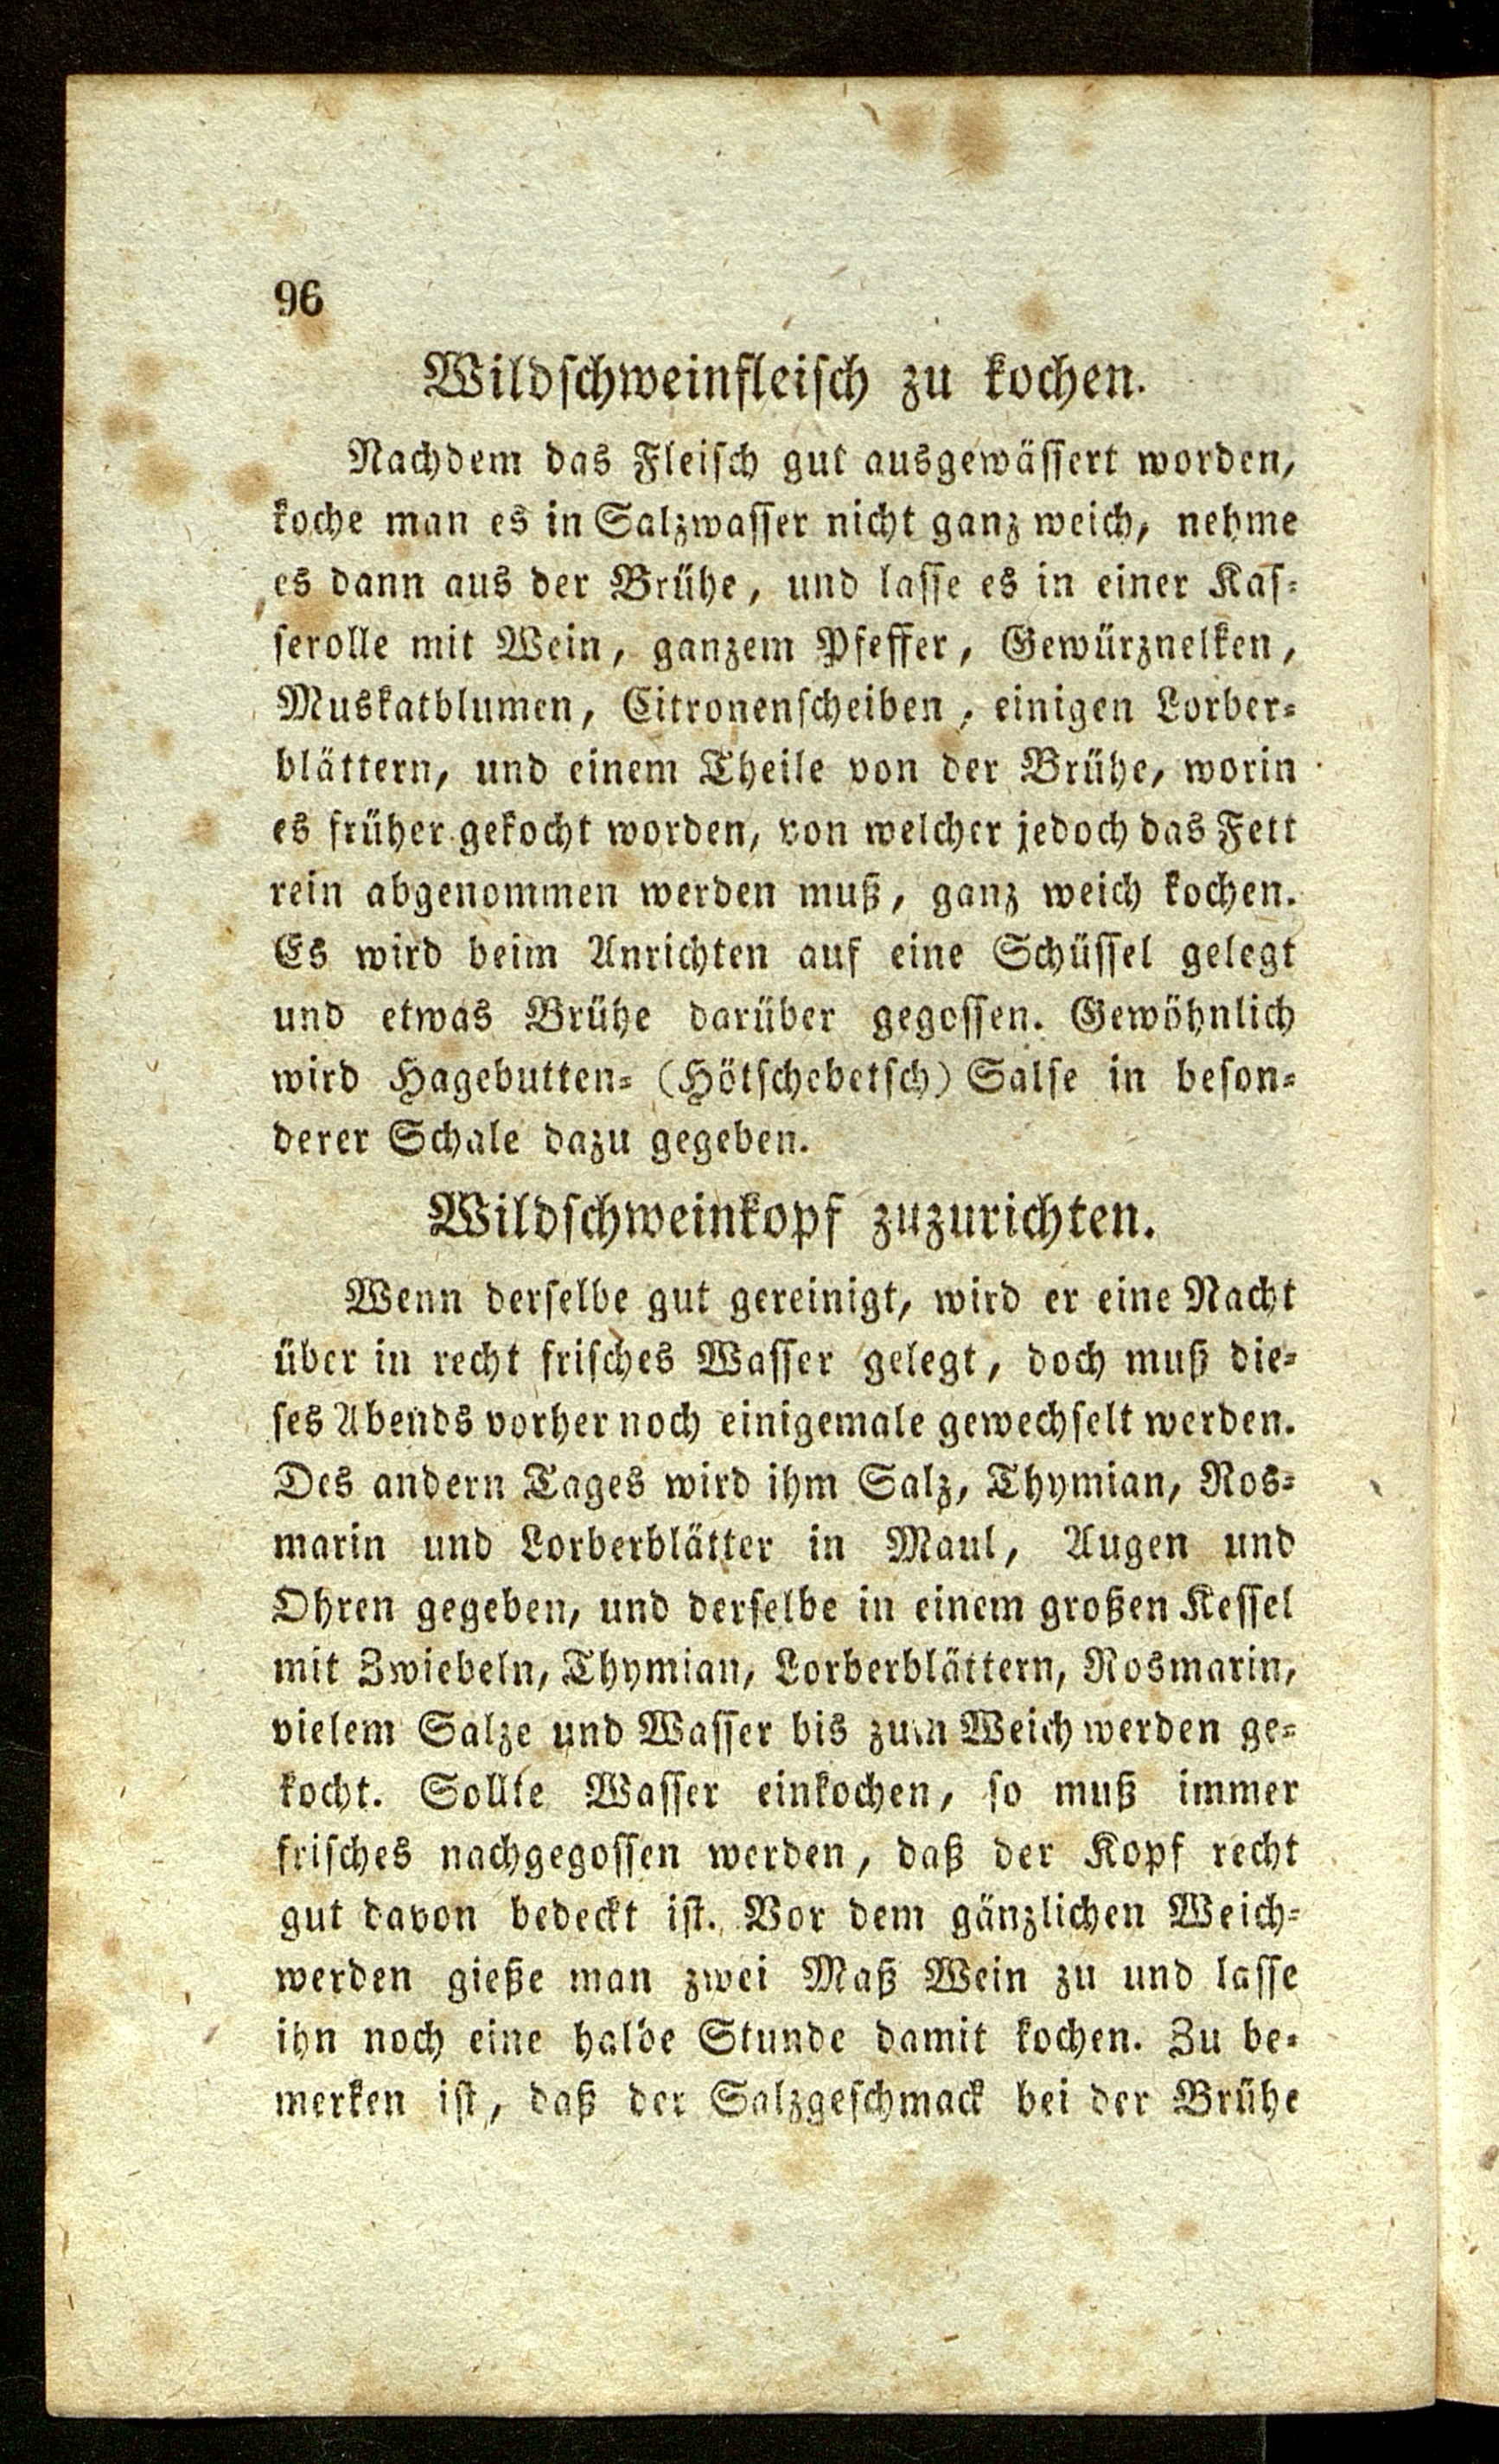 96
Wildschweinfleisch zu kochen.
Nachdem das Fleisch gut ausgewässert worden,
koche man es in Salzwasser nicht ganz weich, nehme
es dann aus der Brühe, und lasse es in einer Kas-
serolle mit Wein, ganzem Pfeffer, Gewürznelken,
Muskatblumen, Citronenscheiben, einigen Lorber-
blättern, und einem Theile von der Brühe, worin
es früher gekocht worden, von welcher jedoch das Fett
rein abgenommen werden muß, ganz weich kochen.
Es wird beim Anrichten auf eine Schüssel gelegt
und etwas Brühe darüber gegossen. Gewöhnlich
wird Hagebutten- (Hötschebetsch) Salse in beson-
derer Schale dazu gegeben.
Wildschweinkopf zuzurichten.
Wenn derselbe gut gereinigt, wird er eine Nacht
über in recht frisches Wasser gelegt, doch muß die-
ses Abends vorher noch einigemale gewechselt werden.
Des andern Tages wird ihm Salz, Thymian, Ros-
marin und Lorberblätter in Maul, Augen und
Ohren gegeben, und derselbe in einem großen Kessel
mit Zwiebeln, Thymian, Lorberblättern, Rosmarin,
vielem Salze und Wasser bis zum Weich werden ge-
kocht. Sollte Wasser einkochen, so muß immer
frisches nachgegossen werden, daß der Kopf recht
gut davon bedeckt ist. Vor dem gänzlichen Weich-
werden gieße man zwei Maß Wein zu und lasse
ihn noch eine halbe Stunde damit kochen. Zu be-
merken ist, daß der Salzgeschmack bei der Brühe